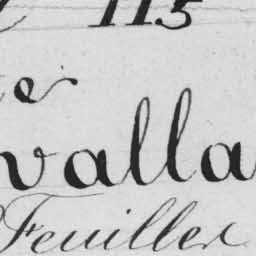 115
e
valla
Feuillex